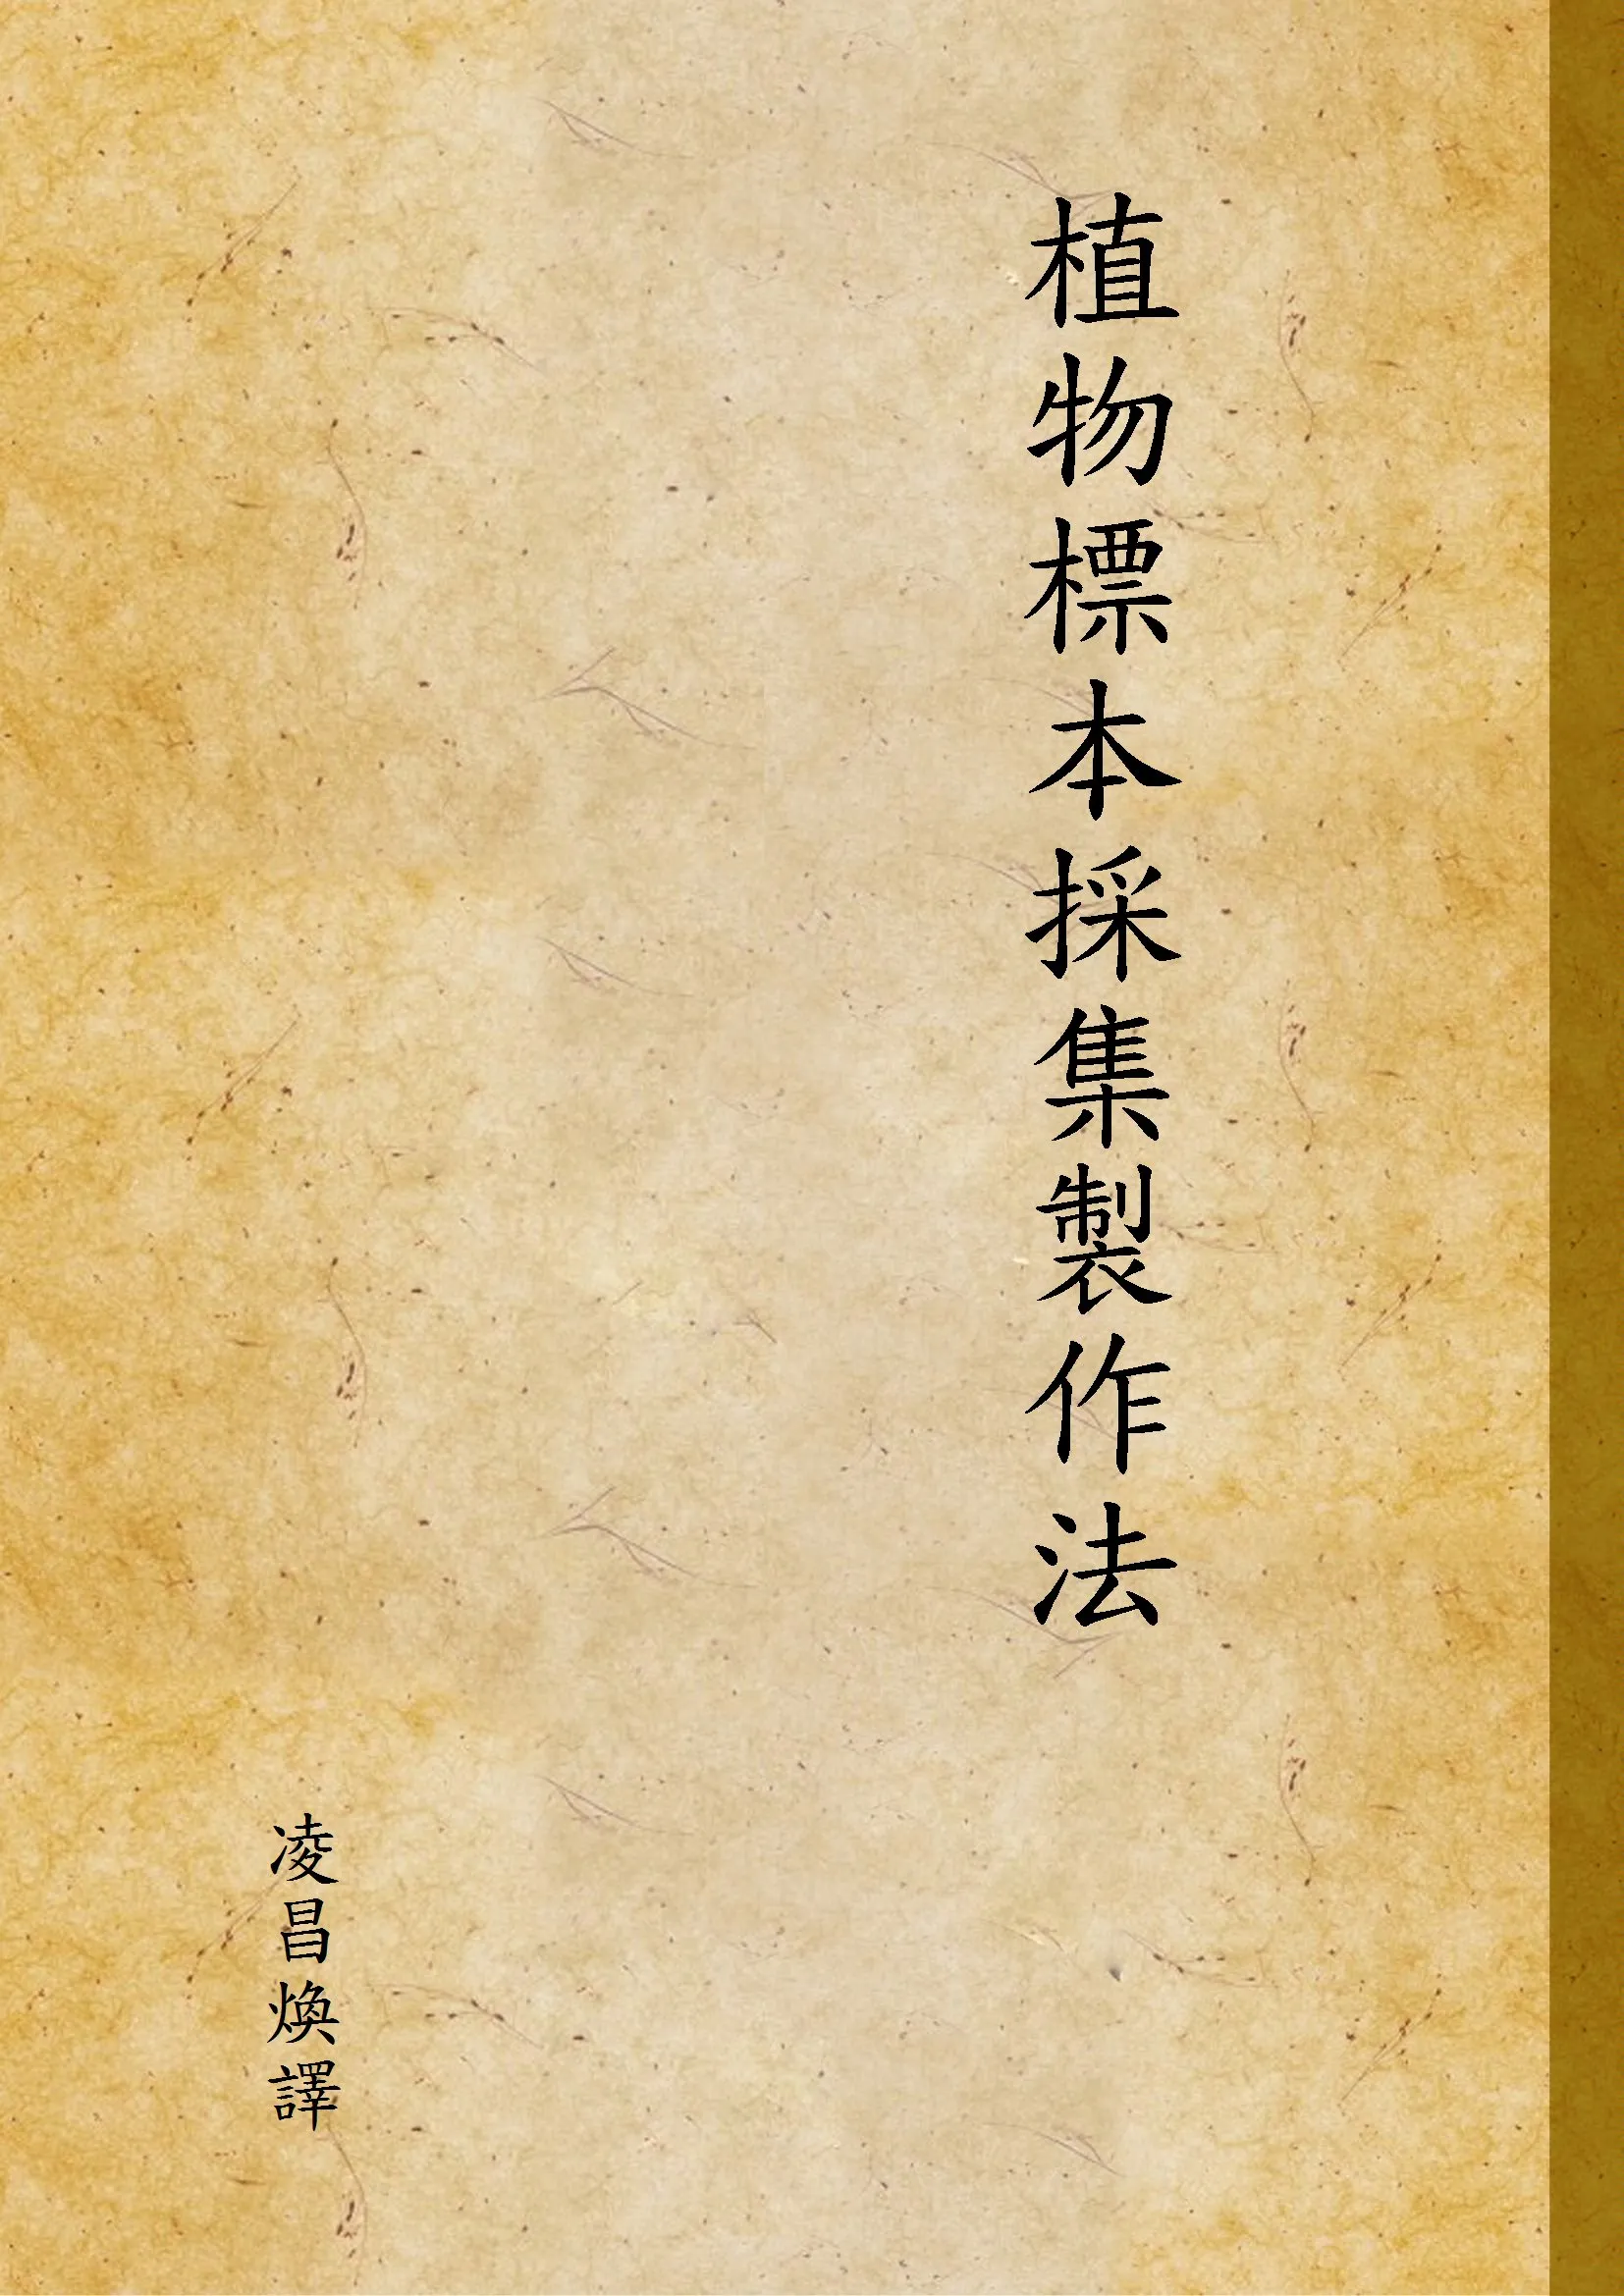 植物標本採集製作法
凌昌煥譯